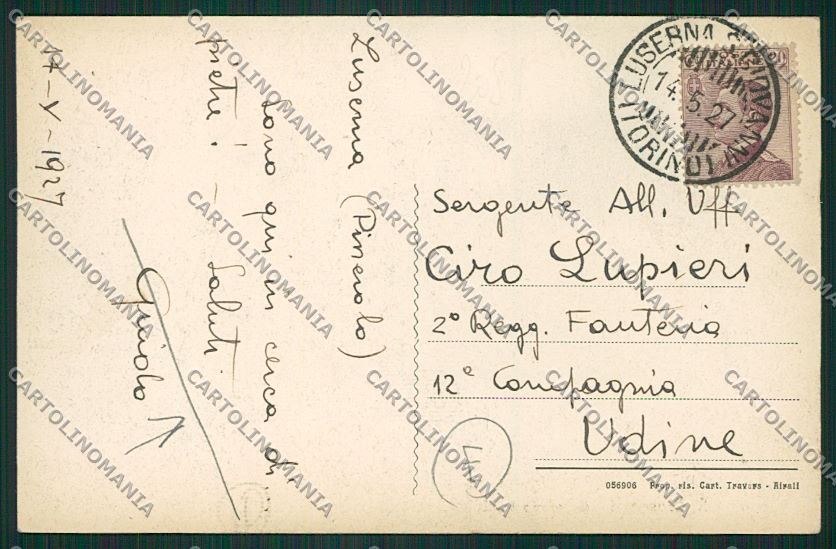 Luserna (Pinerolo)
sono qui in cerca di
pietre! - Saluti
Guido
14-V-1927
LUSERNA S. GIOVANNI
14.5.27
(TORINO)
Sergente All. Uff.
Ciro Lupieri
2º Regg. Fanteria
12ª Compagnia
Udine
056906 Prop. ris. Cart. Travers - Airali
CARTOLINOMANIA